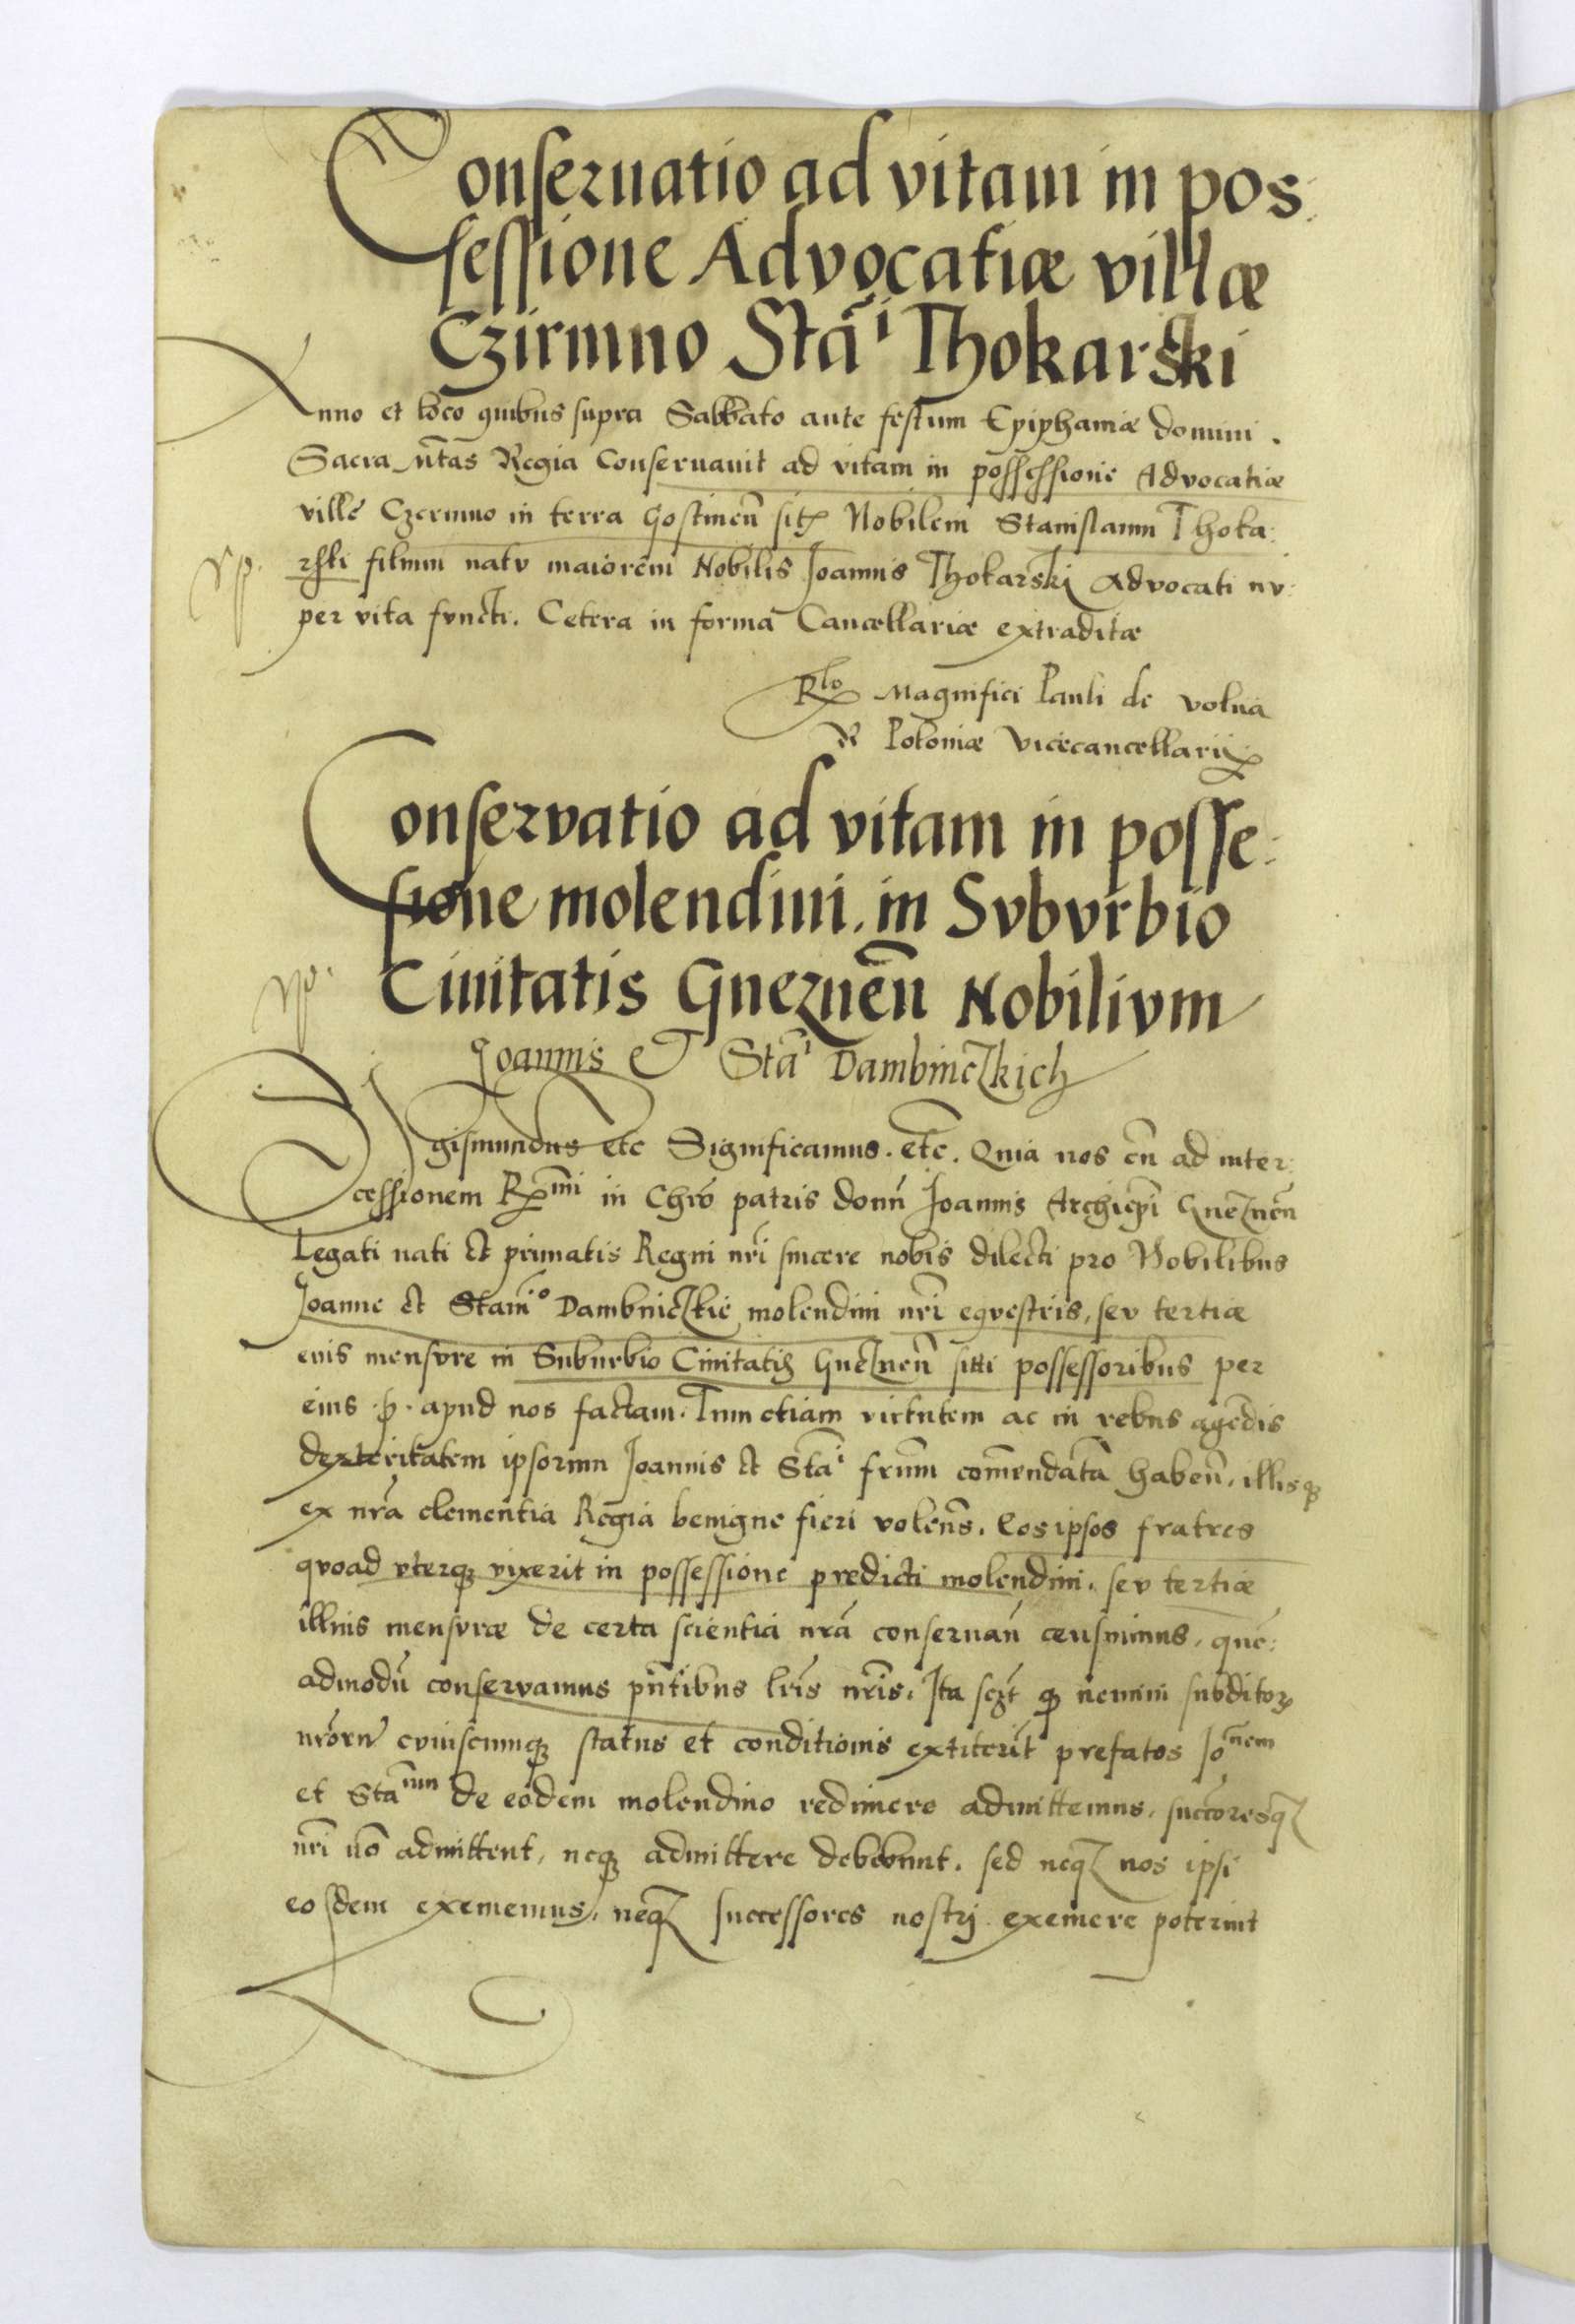 Conseruatio ad vitam in pos:
sessione Advocatiæ villæ
Czirmno Stãi Thokarski
Anno et loco quibus supra Sabbato ante festum Epiphaniæ domini.
Sacra Mtas Regia Conseruauit ad vitam in possessione Advocatiæ
ville Czermno in terra Gostineñ sit Nobilem Stanislaum Thoka:
rski filium natv maiorem Nobilis Joannis Thokarski Advocati nv:
per vita fvncti. Cetera in forma Cancellariæ extraditæ
Rlo Magnifici Pauli de volua
R Poloniæ vicecancellarij
Conservatio ad vitam in posse:
sione molendini in Svbvrbio
Ciuitatis Gnezneñ Nobilivm
Joannis et Stãi Dambinczkich
Sigismundus etc Significamus. etc. Quia nos cũ ad inter:
cessionem Rmi in Chro patris domñ Joannis Archiepi Gnezneñ
Legati nati et primatis Regni nri sincere nobis dilecti pro Nobilibus
Joanne et Stanio Dambniczkie molendini nri eqvestris, sev tertiæ
euis mensvre in Suburbio Ciuitatis Gnezneñ siti possessoribus per
eius .p. apud nos factam. Tum etiam virtutem ac in rebus agẽdis
dexteritatem ipsorum Joannis et Stãi frum cõmendatã habeñ, illisq
ex nra clementia Regia benigne fieri voleñs. Eos ipsos fratres
qvoad vterq vixerit in possessione prædicti molendini, sev tertiæ
illius mensvræ de certa scientia nrã conseruañ censuimus, quẽ:
admodũ conservamus pntibus lris nris. Ita sczt q nemini subditor
nrorũ cviuscumq status et conditionis extiterit prefatos Jonem
et Stanum de eodem molendino redimere admittemus, succoresq
nri nõ admittent, neq admittere debebunt. sed neq nos ipsi
eosdem eximemus, neq successores nostrj eximere poterunt